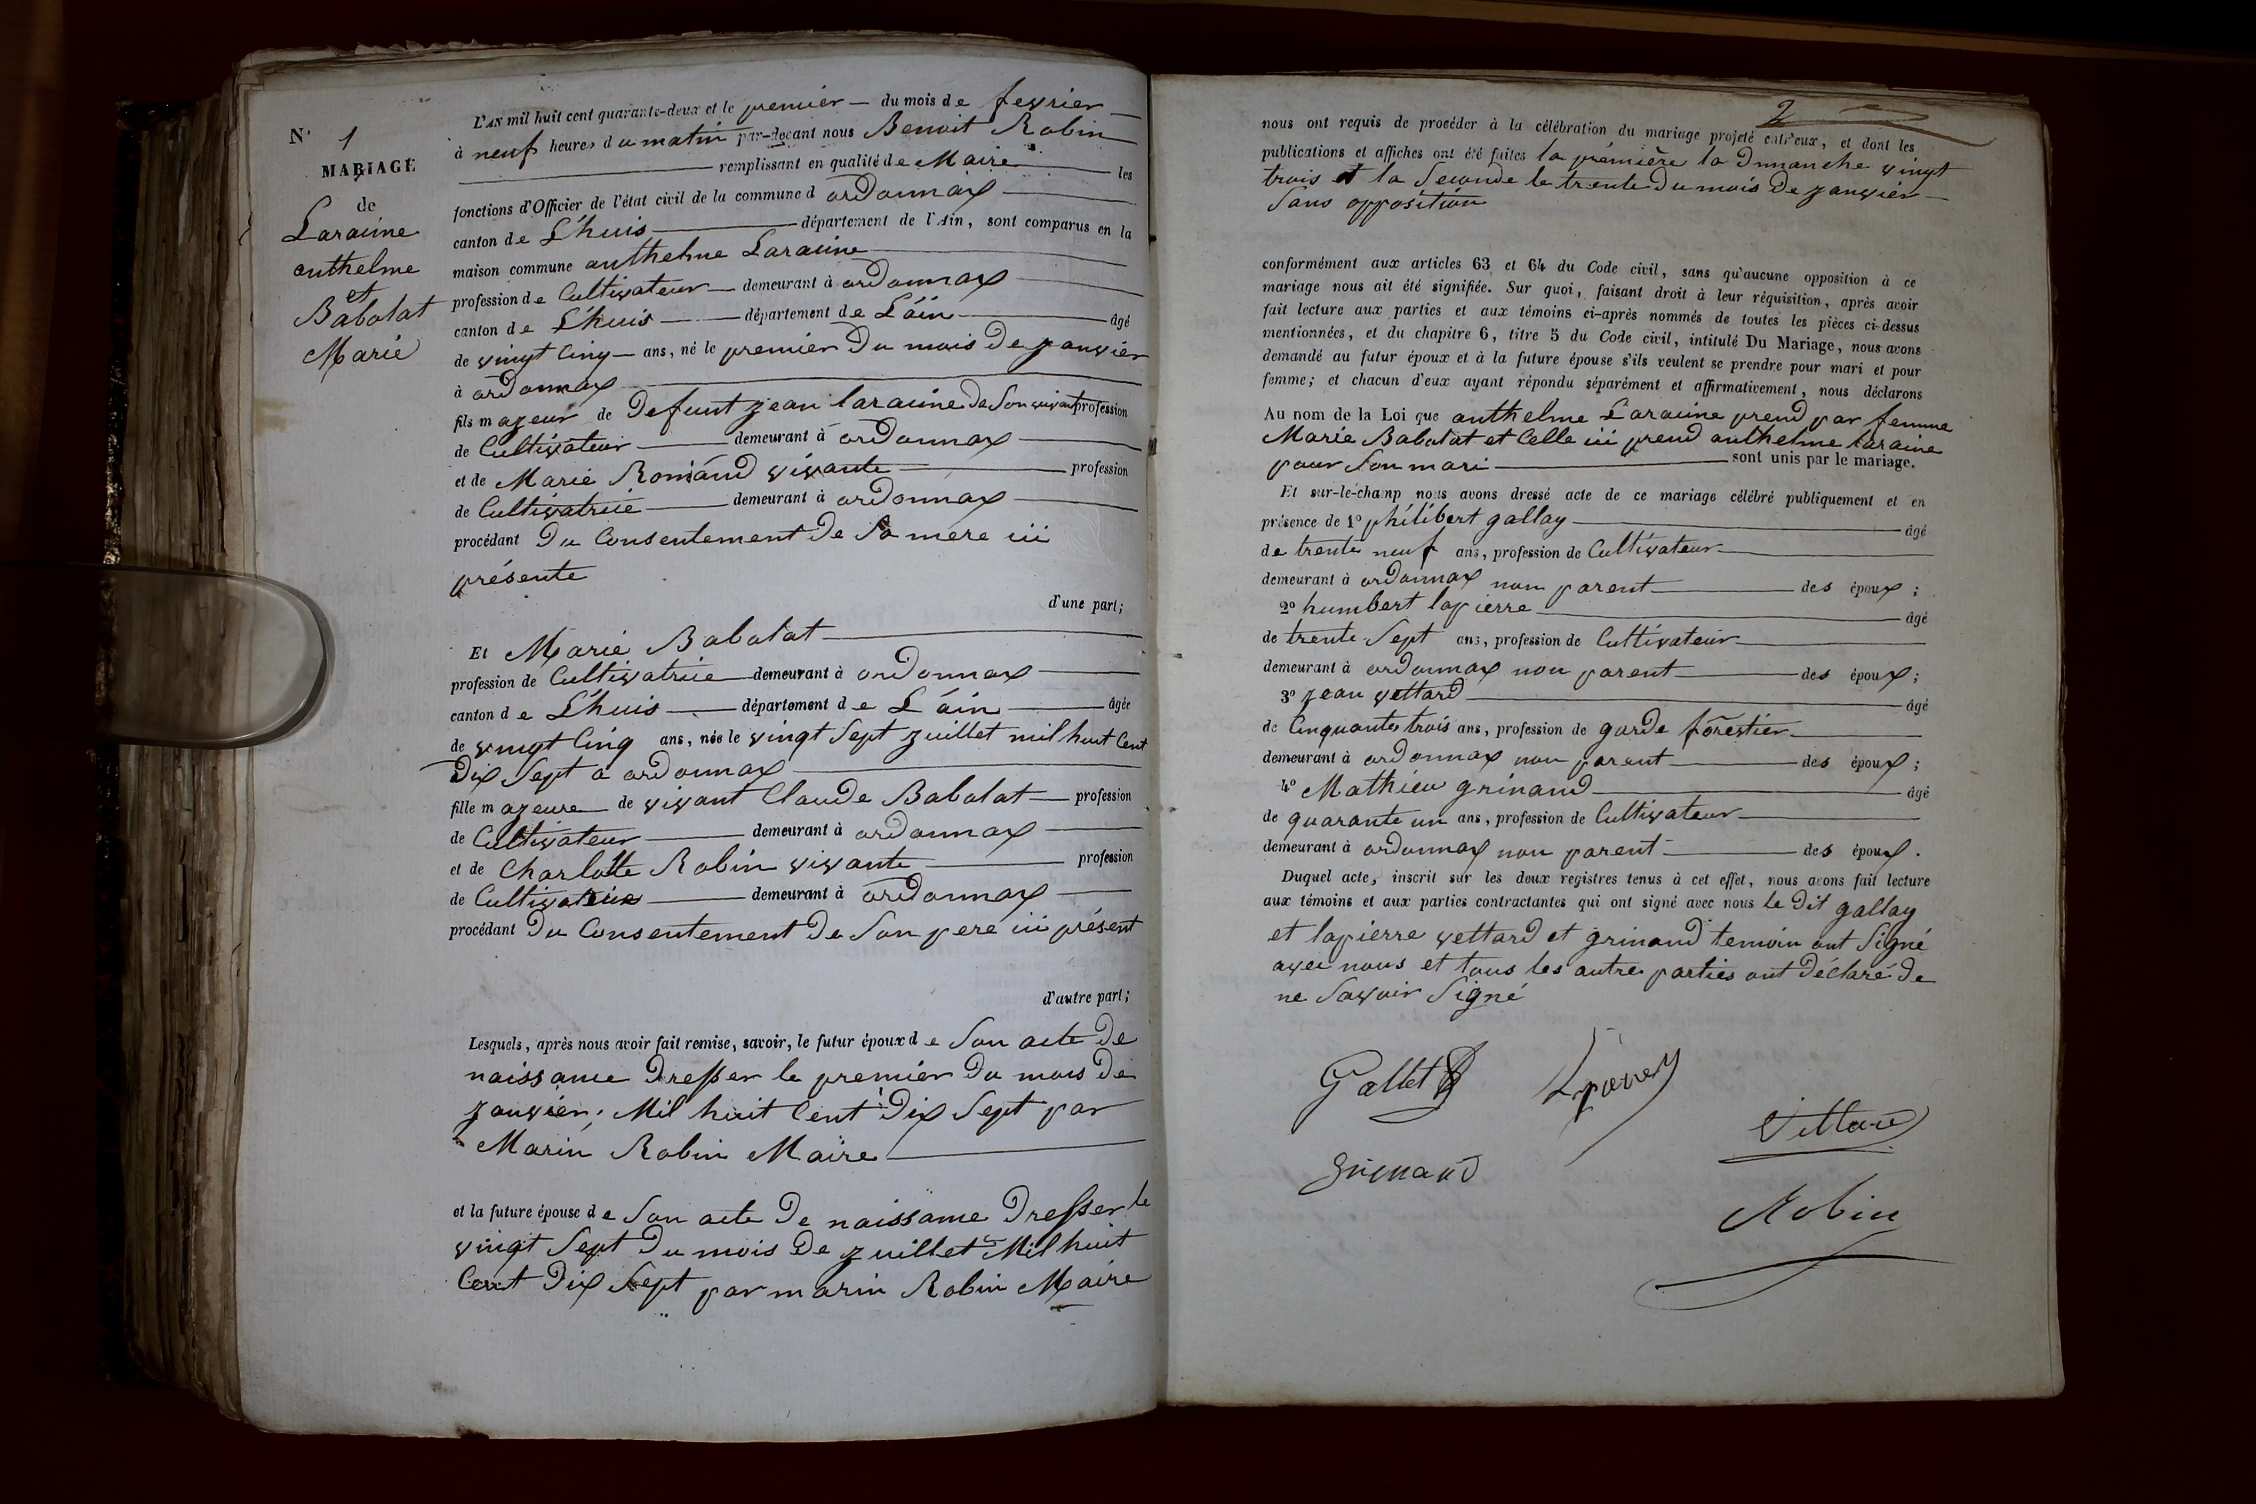 N° 1
MARIAGE
de
Laraime
anthelme
et
Babolat
Marie
L'AN mil huit cent quarante-deux et le premier du mois de fevrier
à neuf heures du matin par-devant nous Benoit Robin
remplissant en qualité de Maire les
fonctions d'Officier de l'état civil de la commune d ordonnax
canton de L'huis département de l'Ain, sont comparus en la
maison commune anthelme Laraime
profession de Cultivateur demeurant à ordonnax
canton de L'huis département de L'ain âgé
de vingt Cinq ans, né le premier Du mois De janvier
à ordonnax
fils majeur de Defunt jean laraime de Son vivant profession
de Cultivateur demeurant à ordonnax
et de Marie Romand vivante profession
de Cultivatrice demeurant à ordonnax
procédant Du Consentement De Sa mere ici
présente
d'une part;
Et Marie Babolat
profession de Cultivatrice demeurant à ordonnax
canton de L'huis département de L'ain âgée
de vingt Cinq ans, née le vingt Sept juillet mil huit Cent
Dix Sept a ordonnax
fille majeure de vivant Claude Babolat profession
de Cultivateur demeurant à ordonnax
et de Charlotte Robin vivante profession
de Cultivatrice demeurant à ordonnax
procédant Du Consentement De Son pere ici présent
d'autre part;
Lesquels, après nous avoir fait remise, savoir, le futur époux de Son acte De
naissance Dresser le premier Du mois De
janvier; Mil huit Cent Dix Sept par
Marin Robin Maire
et la future épouse de Son acte De naissance Dresser le
vingt Sept Du mois De juillet Mil huit
Cent Dix Sept par marin Robin Maire
2
nous ont requis de procéder à la célébration du mariage projeté entr'eux, et dont les
publications et affiches ont été faites la première la Dimanche vingt
trois et la Seconde le trente Du mois De janvier
Sans opposition
conformément aux articles 63 et 64 du Code civil, sans qu'aucune opposition à ce
mariage nous ait été signifiée. Sur quoi, faisant droit à leur réquisition, après avoir
fait lecture aux parties et aux témoins ci-après nommés de toutes les pièces ci-dessus
mentionnées, et du chapitre 6, titre 5 du Code civil, intitulé Du Mariage, nous avons
demandé au futur époux et à la future épouse s'ils veulent se prendre pour mari et pour
femme; et chacun d'eux ayant répondu séparément et affirmativement, nous déclarons
Au nom de la Loi que anthelme Laraime prend par femme
Marie Babolat et Celle ici prend anthelme laraime
pour Son mari sont unis par le mariage.
Et sur-le-champ nous avons dressé acte de ce mariage célébré publiquement et en
présence de 1° philibert gallay âgé
de trente neuf ans, profession de Cultivateur
demeurant à ordonnax non parent des époux;
2° humbert lapierre âgé
de trente Sept ans, profession de Cultivateur
demeurant à ordonnax non parent des époux;
3° jean vettard âgé
de Cinquante trois ans, profession de garde forestier
demeurant à ordonnax non parent des époux;
4° Mathieu grinand âgé
de quarante un ans, profession de Cultivateur
demeurant à ordonnax non parent des époux.
Duquel acte, inscrit sur les deux registres tenus à cet effet, nous avons fait lecture
aux témoins et aux parties contractantes qui ont signé avec nous Le Dit gallay
et lapierre vettard et grinand temoin ont Signé
avec nous et tous les autre parties ont Déclaré De
ne Savoir Signé
Gallet
Vettard
Grinand
Robin